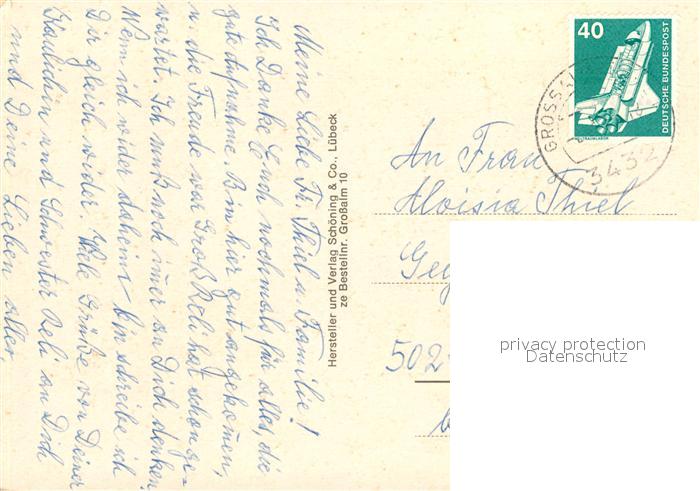 Meine Liebe Fr. Thiel u. Familie!
Ich Danke Euch nochmals für alles, die
gute Aufnahme. Bin hier gut angekommen,
u. die Freude war Groß Reli hat schon ge-
wartet. Ich muß noch imer an Dich denken.
Wenn ich wider daheim bin schreibe ich
Dir gleich wider. Viele Grüße von Deiner
und Schwester Reli an Dich
und Deine Lieben alle.
Hersteller und Verlag Schöning & Co., Lübeck
ze Bestellnr. Großalm 10
40
DEUTSCHE BUNDESPOST
GROSS
3432
An Frau
Aloisia Thiel
Geg
502
privacy protection
Datenschutz